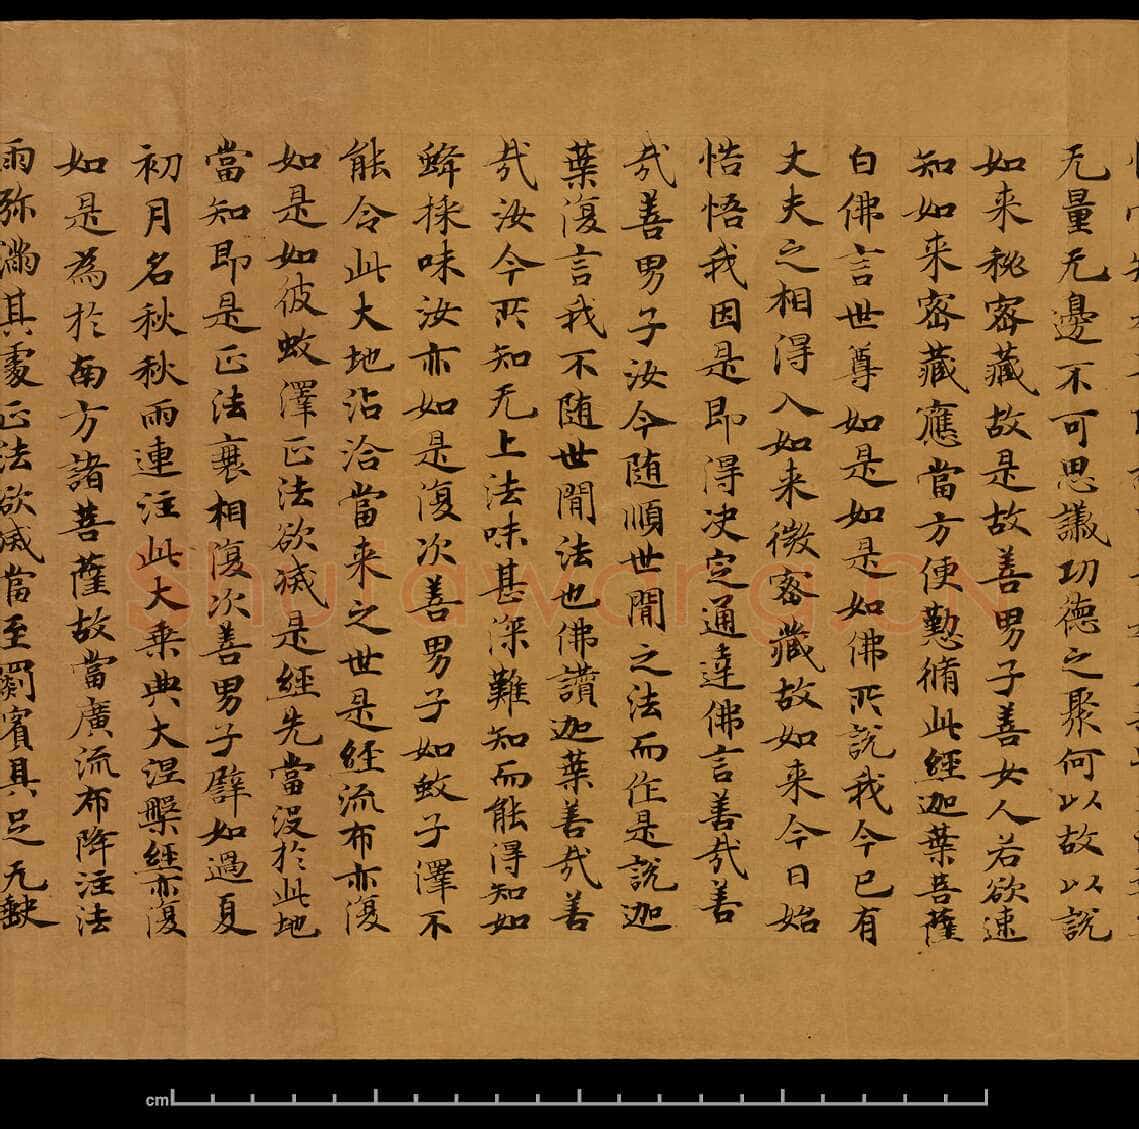 无量无邊不可思議功德之聚何以故以說
如来秘密藏故是故善男子善女人若欲速
知如来密藏應當方便勤脩此經迦葉菩薩
白佛言世尊如是如是如佛所說我今已有
丈夫之相得入如来微密藏故如来今日始
悟我因是即得决定通達佛言善㢤善
㢤善男子汝今随順世間之法而作是說迦
葉復言我不随世間法也佛讚迦葉善㢤善
㢤汝今所知无上法味甚深難知而能得知如
蜂採味汝亦如是復次善男子如蚊子澤不
能令此大地沾洽當来之世是經流布亦復
如是如彼蚊澤正法欲滅是經先當没於此地
當知即是正法衰相復次善男子譬如過夏
初月名秋秋雨連注此大乗典大涅槃經亦復
如是為於南方諸菩薩故當廣流布降注法
雨弥滿其處正法欲滅當至罽賓具足无缺
Shufawang.CN
cm